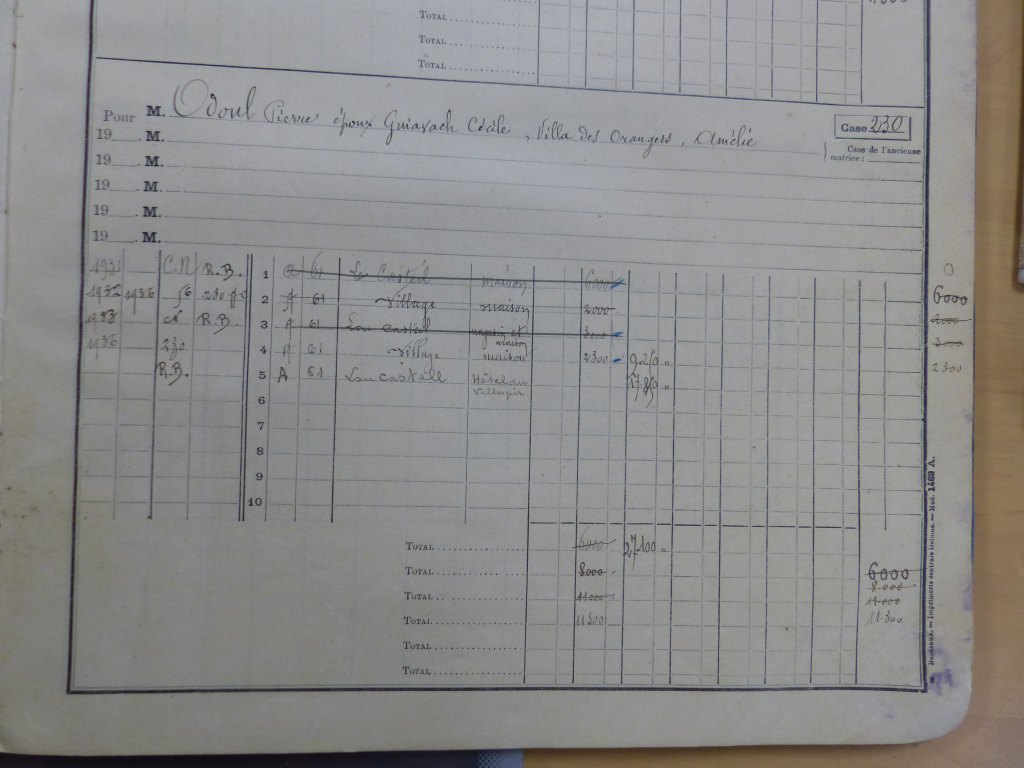 1300
TOTAL
TOTAL
TOTAL
Pour M. Odoul Pierre époux Guiavach Cécile, Villa des Orangers, Amélie
Case 230
19 M.
Case de l'ancienne matrice :
19 M.
19 M.
19 M.
19 M.
C.N R.B. 1 61 Le Castéil maison 6000 0
1932 1936 56 2 A 61 Village maison 2000 6000
1933 cn R.B. 3 A 61 Lou castéil magasin et maison 3000 2000
1936 230 4 A 61 Village maison 2300 9.250 " 3000
R.B. 5 A 61 Lou castell Hôtel du Vallespir 17.850 " 2300
6
7
8
9
10
TOTAL 6000 27100 "
TOTAL 8000 6000
TOTAL 11.000 8.000
TOTAL 11300 11.000
11.300
TOTAL
TOTAL
Bordeaux. — Imprimerie centrale Delmas. — Mod. 1469 A.